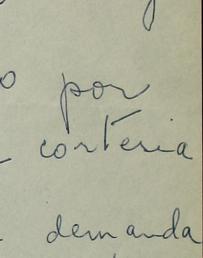 o por
corteria
demanda